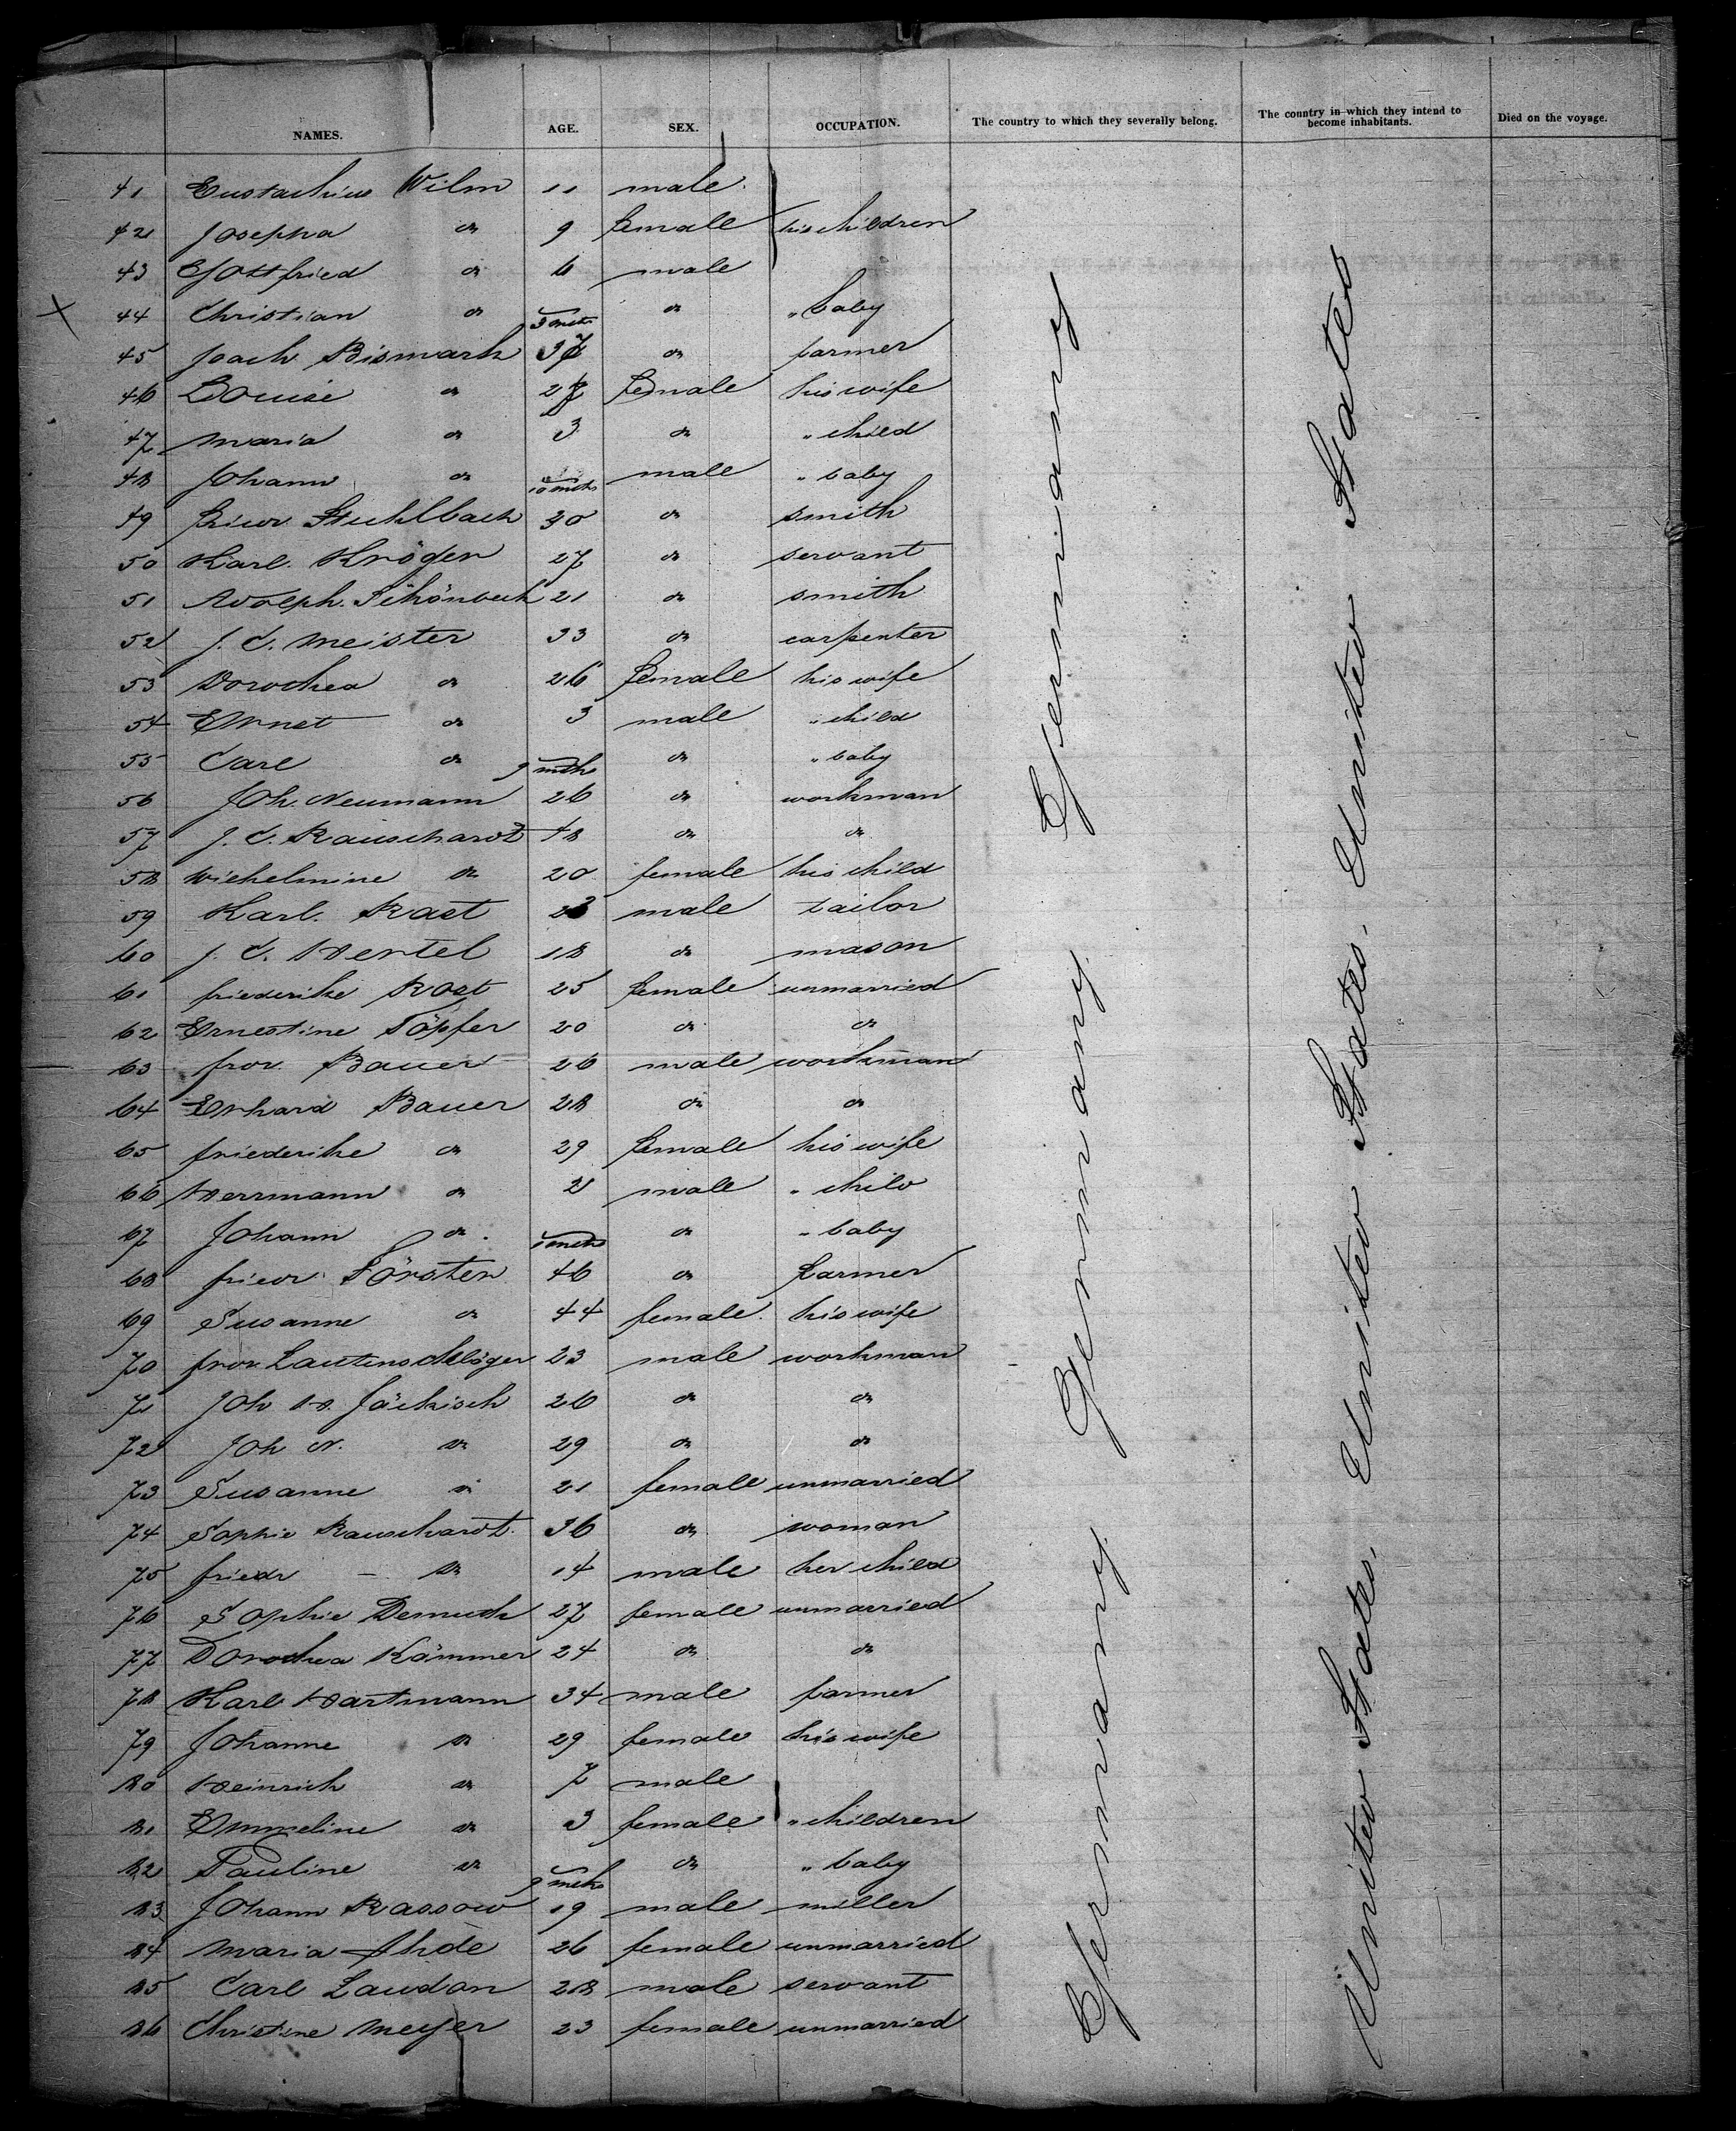 NAMES. AGE. SEX. OCCUPATION. The country to which they severally belong. The country in which they intend to become inhabitants. Died on the voyage.
41 Eustachius Wilm 11 male
42 Josepha do 9 female his children
43 Gottfried do 6 male
44 Christian do 5 mths do " baby
45 Joach Bismark 37 do farmer
46 Louise do 27 female his wife
47 Maria do 3 do " child
48 Johann do 10 mths male " baby
49 Friedr Stuhlbach 30 do smith
50 Karl Kröger 27 do servant
51 Adolph Schönbeck 21 do smith
52 J. C. Meister 33 do carpenter
53 Dorothea do 26 female his wife
54 Ernst do 3 male " child
55 Carl do 9 mths do " baby
56 Joh. Neumann 26 do workman
57 J. C. Rauschardt 48 do do
58 Wilhelmine do 20 female his child
59 Karl Rast male tailor
60 J. C. Hertel 18 do mason
61 Friederike Rost 25 female unmarried
62 Ernestine Töpfer 20 do do
63 Frdr. Bauer 26 male workman
64 Erhard Bauer 28 do do
65 Friederike do 29 female his wife
66 Herrmann do 2 male " child
67 Johann do mths do " baby
68 Friedr Förster 46 do farmer
69 Susanne do 44 female his wife
70 Frdr. Lautenschläger 23 male workman
71 Joh H. Jäckisch 26 do do
72 Joh N. do 29 do do
73 Susanne do 21 female unmarried
74 Sophie Rauschardt 36 do woman
75 Friedr do 14 male her child
76 Sophie Demuth 27 female unmarried
77 Dorothea Kämmer 24 do do
78 Karl Hartmann 34 male farmer
79 Johanne do 29 female his wife
80 Heinrich do 7 male
81 Emmeline do 3 female " children
82 Pauline do 9 mths do " baby
83 Johann Rassow 19 male miller
84 Maria Ahde 26 female unmarried
85 Carl Laudon 28 male servant
86 Christine Meyer 23 female unmarried
Germany Germany Germany
United States. United States. United States